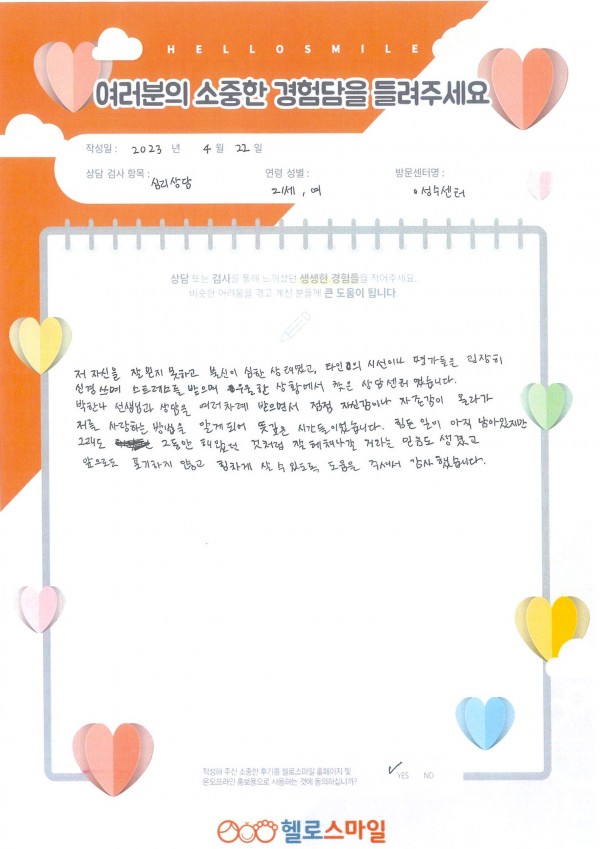 HELLOSMILE
여러분의 소중한 경험담을 들려주세요
작성일 : 2023 년 4 월 22 일
상담 검사 항목 : 심리상담 연령 성별 : 21세, 여 방문센터명 : 성수센터
상담 또는 검사를 통해 느끼셨던 생생한 경험들을 적어주세요.
비슷한 어려움을 겪고 계신 분들께 큰 도움이 됩니다.
저 자신을 잘 믿지 못하고 불신이 심한 상태였고, 타인의 시선이나 평가들을 굉장히
신경 쓰며 스트레스를 받으며 우울한 상황에서 찾은 상담센터 였습니다.
박한나 선생님과 상담을 여러차례 받으면서 점점 자신감이나 자존감이 올라가
저를 사랑하는 방법을 알게되어 뜻깊은 시간들이었습니다. 힘든 일이 아직 남아있지만
그래도 그동안 해왔던 것처럼 잘 헤쳐나갈 거라는 믿음도 생겼고
앞으로도 포기하지 않고 힘차게 살 수 있도록 도움을 주셔서 감사했습니다.
작성해 주신 소중한 후기를 헬로스마일 홈페이지 및
온오프라인 홍보용으로 사용하는 것에 동의하십니까?
✓ YES NO
헬로스마일